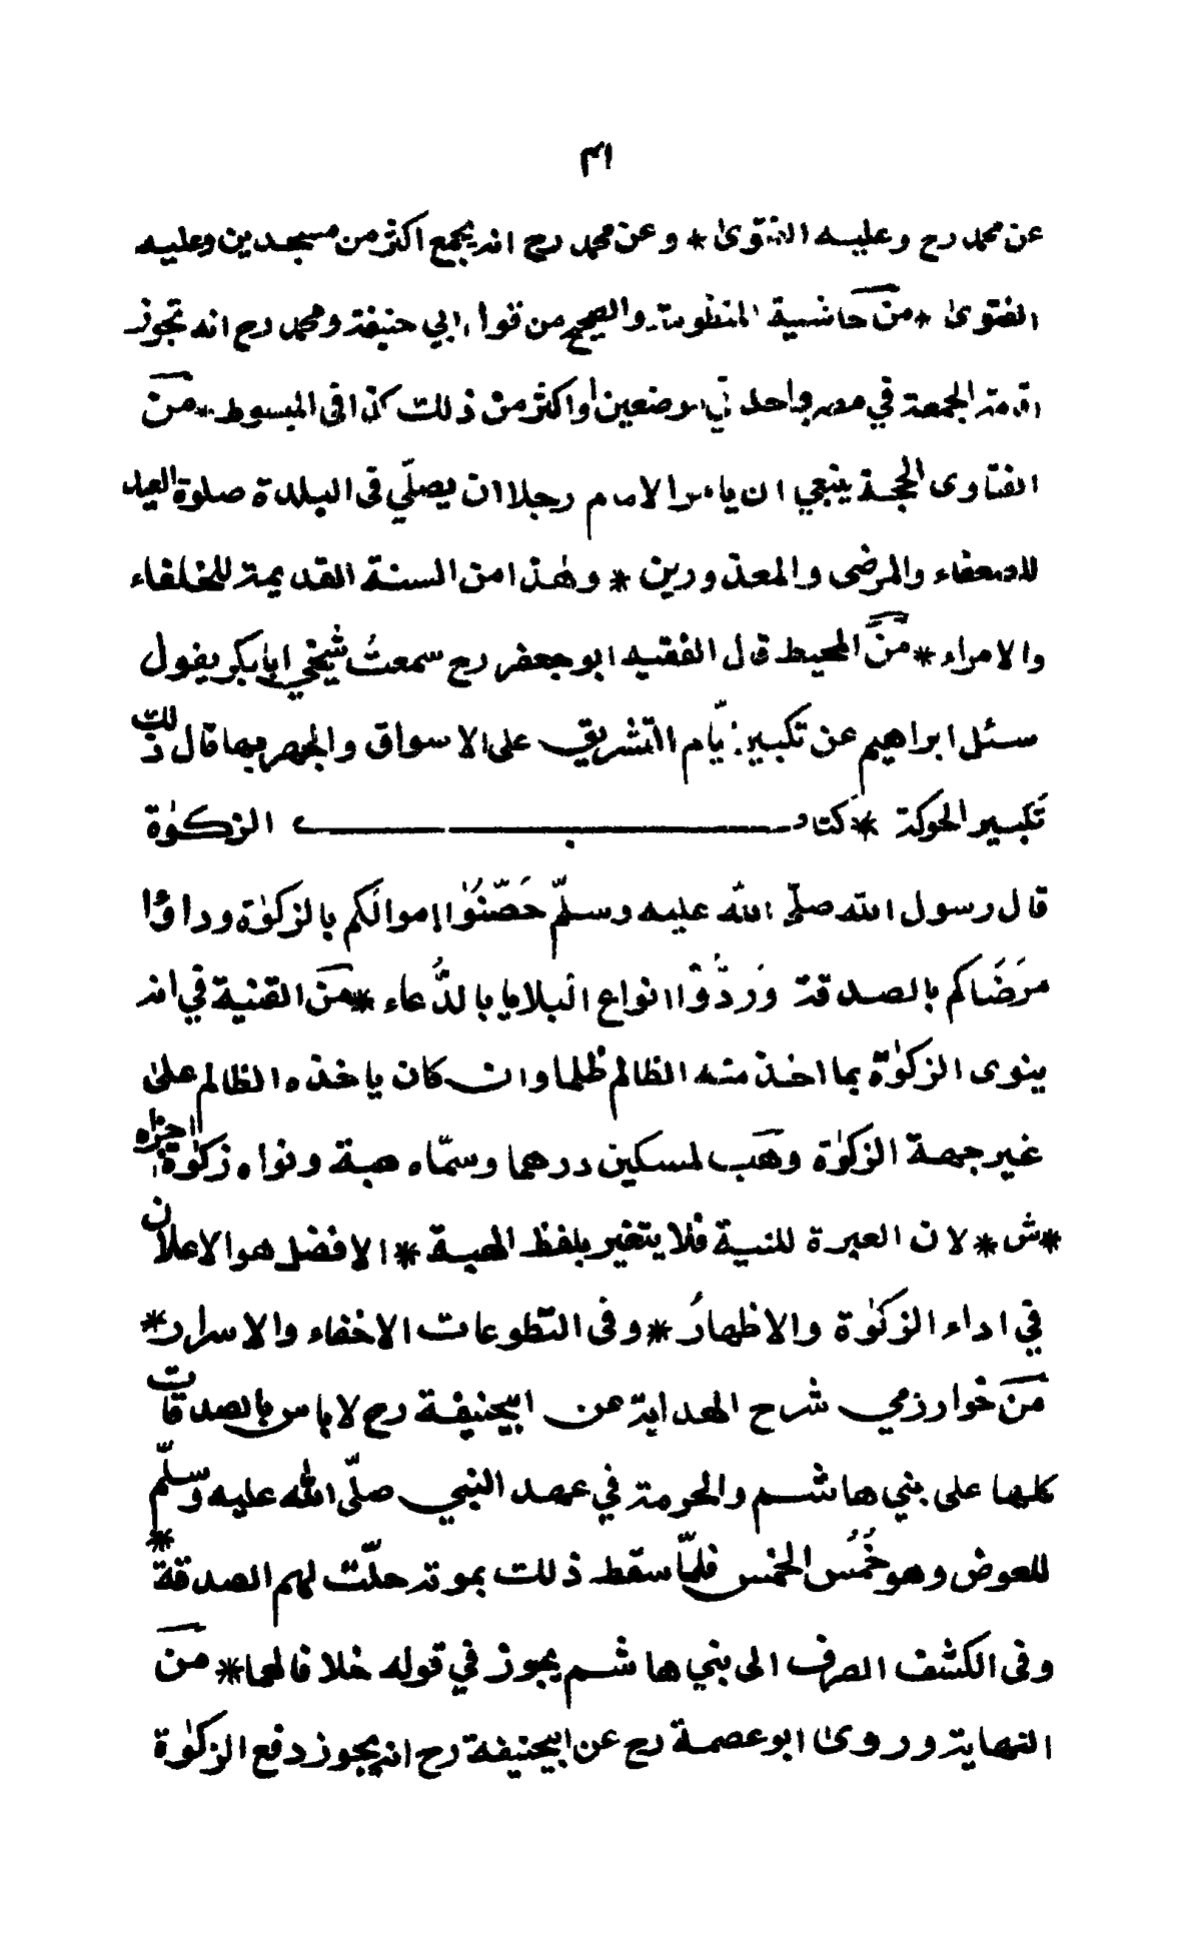 ٣١
عن محمد رح وعليه الفتوىٰ * وعن محمد رح انه يجمع اكثر من مسجدين وعليه
الفتوىٰ * من حاشية المنظومة والصحيح من قول ابي حنيفة ومحمد رح انه تجوز
اقامة الجمعة في مصر واحد في موضعين او اكثر من ذلك كذا في المبسوط * من
الفتاوى الحجة ينبغي ان يامر الامام رجلا ان يصلّي فى البلدة صلوة العيد
للضعفاء والمرضى والمعذورين * وهٰذا من السنة القديمة للخلفاء
والامراء * من المحيط قال الفقيه ابو جعفر رح سمعتُ شيخي ابا بكر يقول
سئل ابراهيم عن تكبير ايّام التشريق على الاسواق والجهر بها قال ذلك
تَكبير الحوكة * كتاب الزكوٰة
قال رسول الله صلّى الله عليه وسلّم حَصّنُوا اموالكم بالزكوٰة وداوُا
مرَضَاكم بالصدقة وَردُّوْا انواع البلايا بالدُّعاء * من القنية في انه
ينوى الزكوٰة بما اخذ منه الظالم ظلما وان كان ياخذه الظالم علىٰ
غير جهة الزكوٰة وهَب لمسكين درهما وسمّاه هبة ونواه زكوٰة اجزاه
* ش * لان العبرة للنية فلا يتغير بلفظ الهبة * الافضل هو الاعلان
في اداء الزكوٰة والاظهارُ * وفى التّطوعات الاخفاء والاسرار *
من خوارزمي شرح الهداية عن ابيحنيفة رح لا باس بالصدقات
كلها على بني هاشم والحرمة في عهد النبي صلّى الله عليه وسلّم
للعوض وهو خُمُس الخمس فلمّا سقط ذلك بموته حلّت لهم الصدقة *
وفى الكشف الصرف الى بني هاشم يجوز في قوله خلافا لهما * من
النهاية وروىٰ ابو عصمة رح عن ابيحنيفة رح انه يجوز دفع الزكوٰة